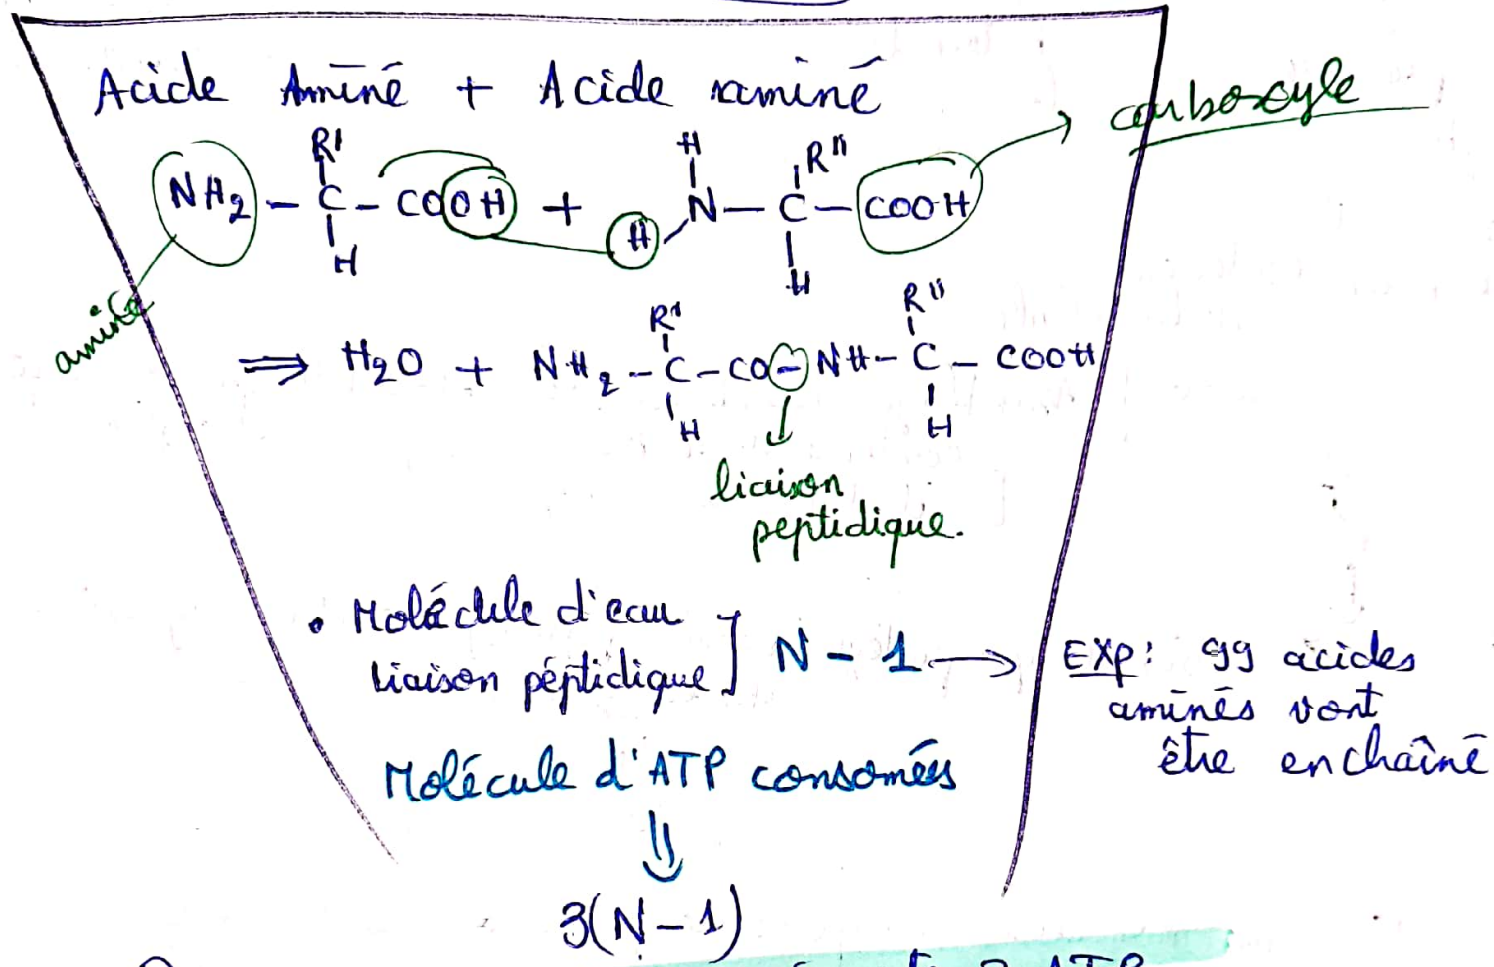 Acide Aminé + Acide aminé
carboxyle
R' H R"
NH2 - C - COOH + H N - C - COOH
H H
aminé
R' R"
⇒ H2O + NH2 - C - CO - NH - C - COOH
H H
liaison
peptidique.
• Molécule d'eau
liaison péptidique ] N - 1 → EXP: 99 acides
aminés vont
être enchaîné
Molécule d'ATP consomées
⇓
3(N-1)